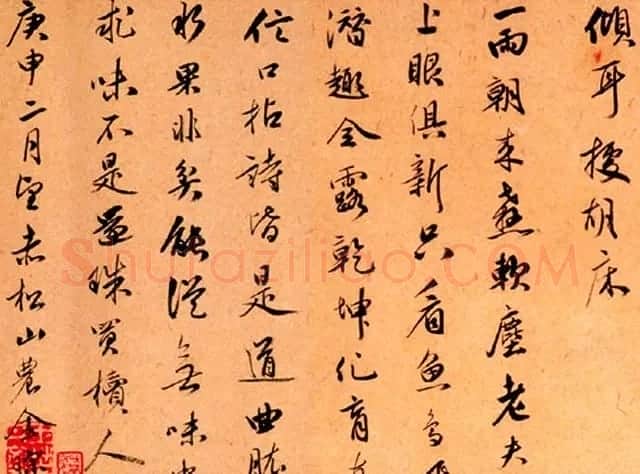 傾耳胡床
一雨朝来軟塵老夫
上眼俱新只看魚鳥
潛趣全露乾坤化育
信口拈詩皆是道曲肱
水果非矣能從無味
求味不是還珠買櫝人
庚申二月望赤松山農金
Shufaziliao.com